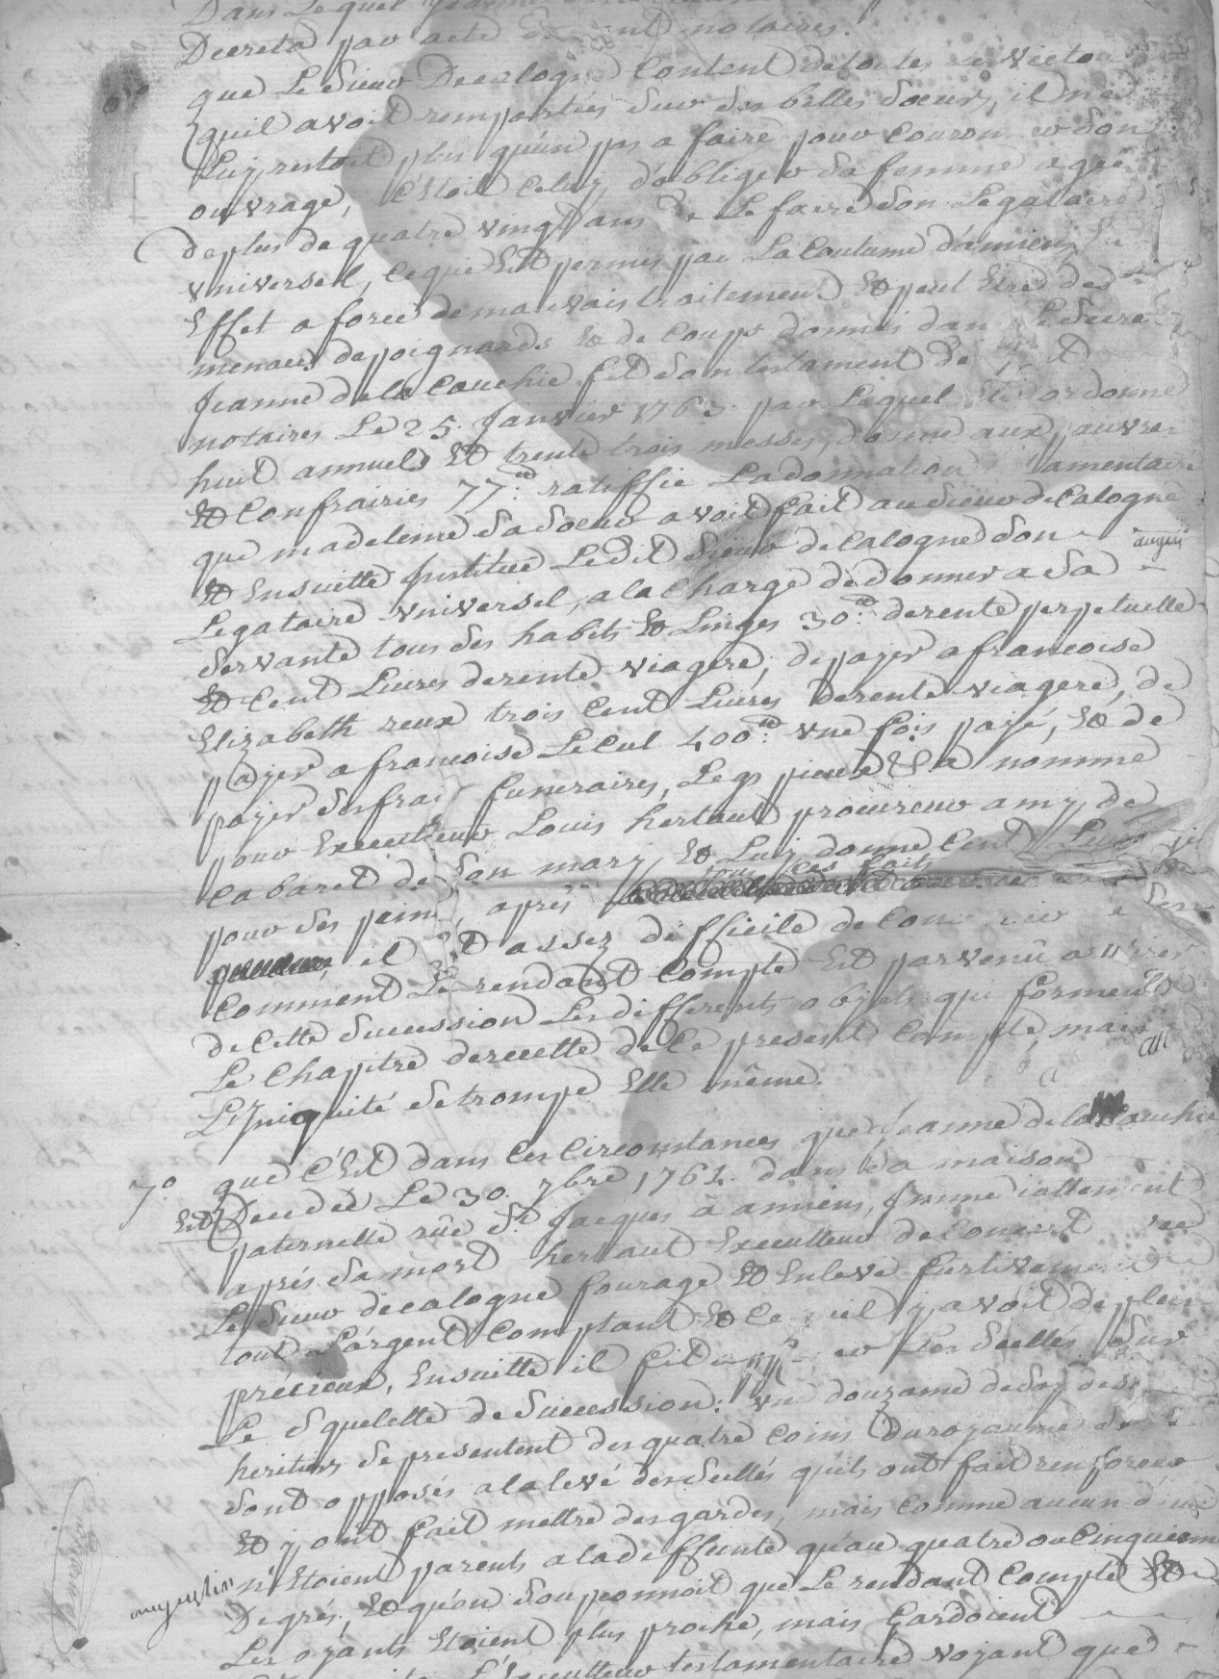 Dans Lequel
Decreta par acte devant notaires.
que Le Sieur Decalogne Content de toutes les victoi
quil avoit remportées Sur Ses belles Soeurs, il ne
Luy restoit plus qu'un pas a faire pour Couronner Son
ouvrage, C'étoit Celuy d'obliger Sa femme agée
de plus de quatre vingt ans de Le faire Son Legataire
vniversel, Ce qui Est permis par La Coutume d'amiens, En
Effet a force de mauvais traitement Et peut Etre des
menaces de poignards Et de Coups donnés dans Le Secret
Jeanne de la Couchie fit Son testament de
notaires Le 25. Janvier 1763. par Lequel Elle ordonne
huit annuels Et trente trois messes, donne aux pauvres
Et Confrairies 77.# ratiffie La donnation testamentaire
que madeleine Sa Soeur avoit fait au Sieur de Calogne
Et Ensuitte Institue Ledit Sieur de Calogne Son
Legataire vniversel, a la Charge de donner a Sa
Servante tous Ses habits Et Linges 30.# de rente perpetuelle
Et Cent Livres de rente viagere, de payer a francoise
Elizabeth reux trois Cent Livres de rente viagere, de
payer a francoise LeCul 400.# vne fois payé, Et de
payer Ses frais funeraires, Legs pieux Et a nommé
pour Executeur Louis hertault procureur amy de
Cabaret de Son mary, Et Luy donne Cent Livres
pour Ses peines, après tous ces faits
il Est assez difficile de
Comment Le rendant Compte Est parvenû a
de Cette Succession Les differents objets qui forment
Le Chapitre de recette de Ce present Compte, mais
L'Iniquité Se trompe Elle même.
7.° que C'Est dans Ces Circonstances que Jeanne de la Couchie
Est Decedée Le 30. 7bre 1762. dans Sa maison
paternelle rûe St. Jacques à amiens, Immediattement
après Sa mort hertault Executteur de Concert avec
Le Sieur de calogne fourage Et Enleve furtivement
tout L'argent Comptant Et Ce quil y avoit de plus
précieux, Ensuitte il fit apposer Les Scellés Sur
Le Squelette de Succession; vne douzaine de Soy desant
heritiers Se presentent des quatre Coins du royaume
Sont opposés a la levé des Scellés qu'ils ont fait renforcer
Et y ont fait mettre des gardes, mais Comme aucun d'eux
n'Etoient parents a la deffunte qu'au quatre ou Cinquieme
Degrés, Et qu'on Soupconnoit que Le rendant Compte Et
Les oyants Etoient plus proche, mais Gardoient
L'Executteur testamentaire voyant que
augustin